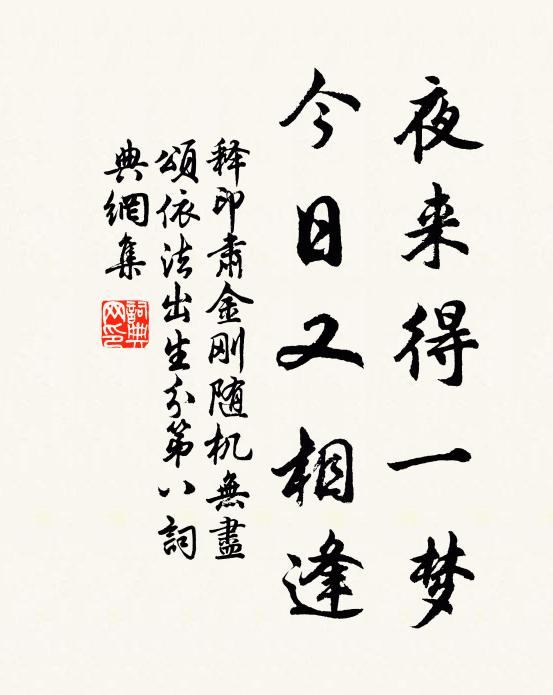 夜来得一梦
今日又相逢
释印肃金刚随机無盡
頌依法出生分第八詞
典網集
詞典
网印